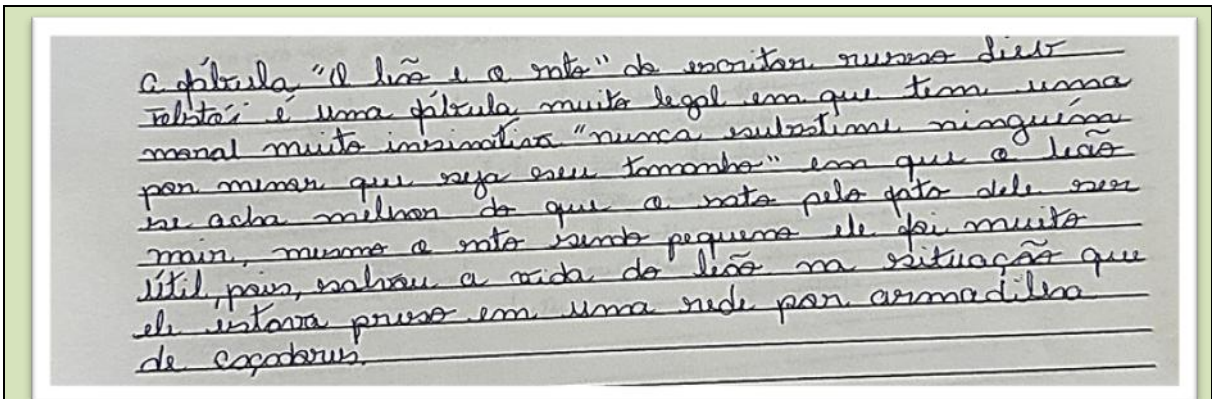 A fábula "O leão e o rato" do escritor russo Liev
Tolstói é uma fábula muito legal em que tem uma
moral muito insinativa "nunca subestime ninguém
por menor que seja seu tamanho" em que o leão
se acha melhor do que o rato pelo fato dele ser
maior, mesmo o rato sendo pequeno ele foi muito
útil, pois, salvou a vida do leão na situação que
ele estava preso em uma rede por armadilha
de caçadores.